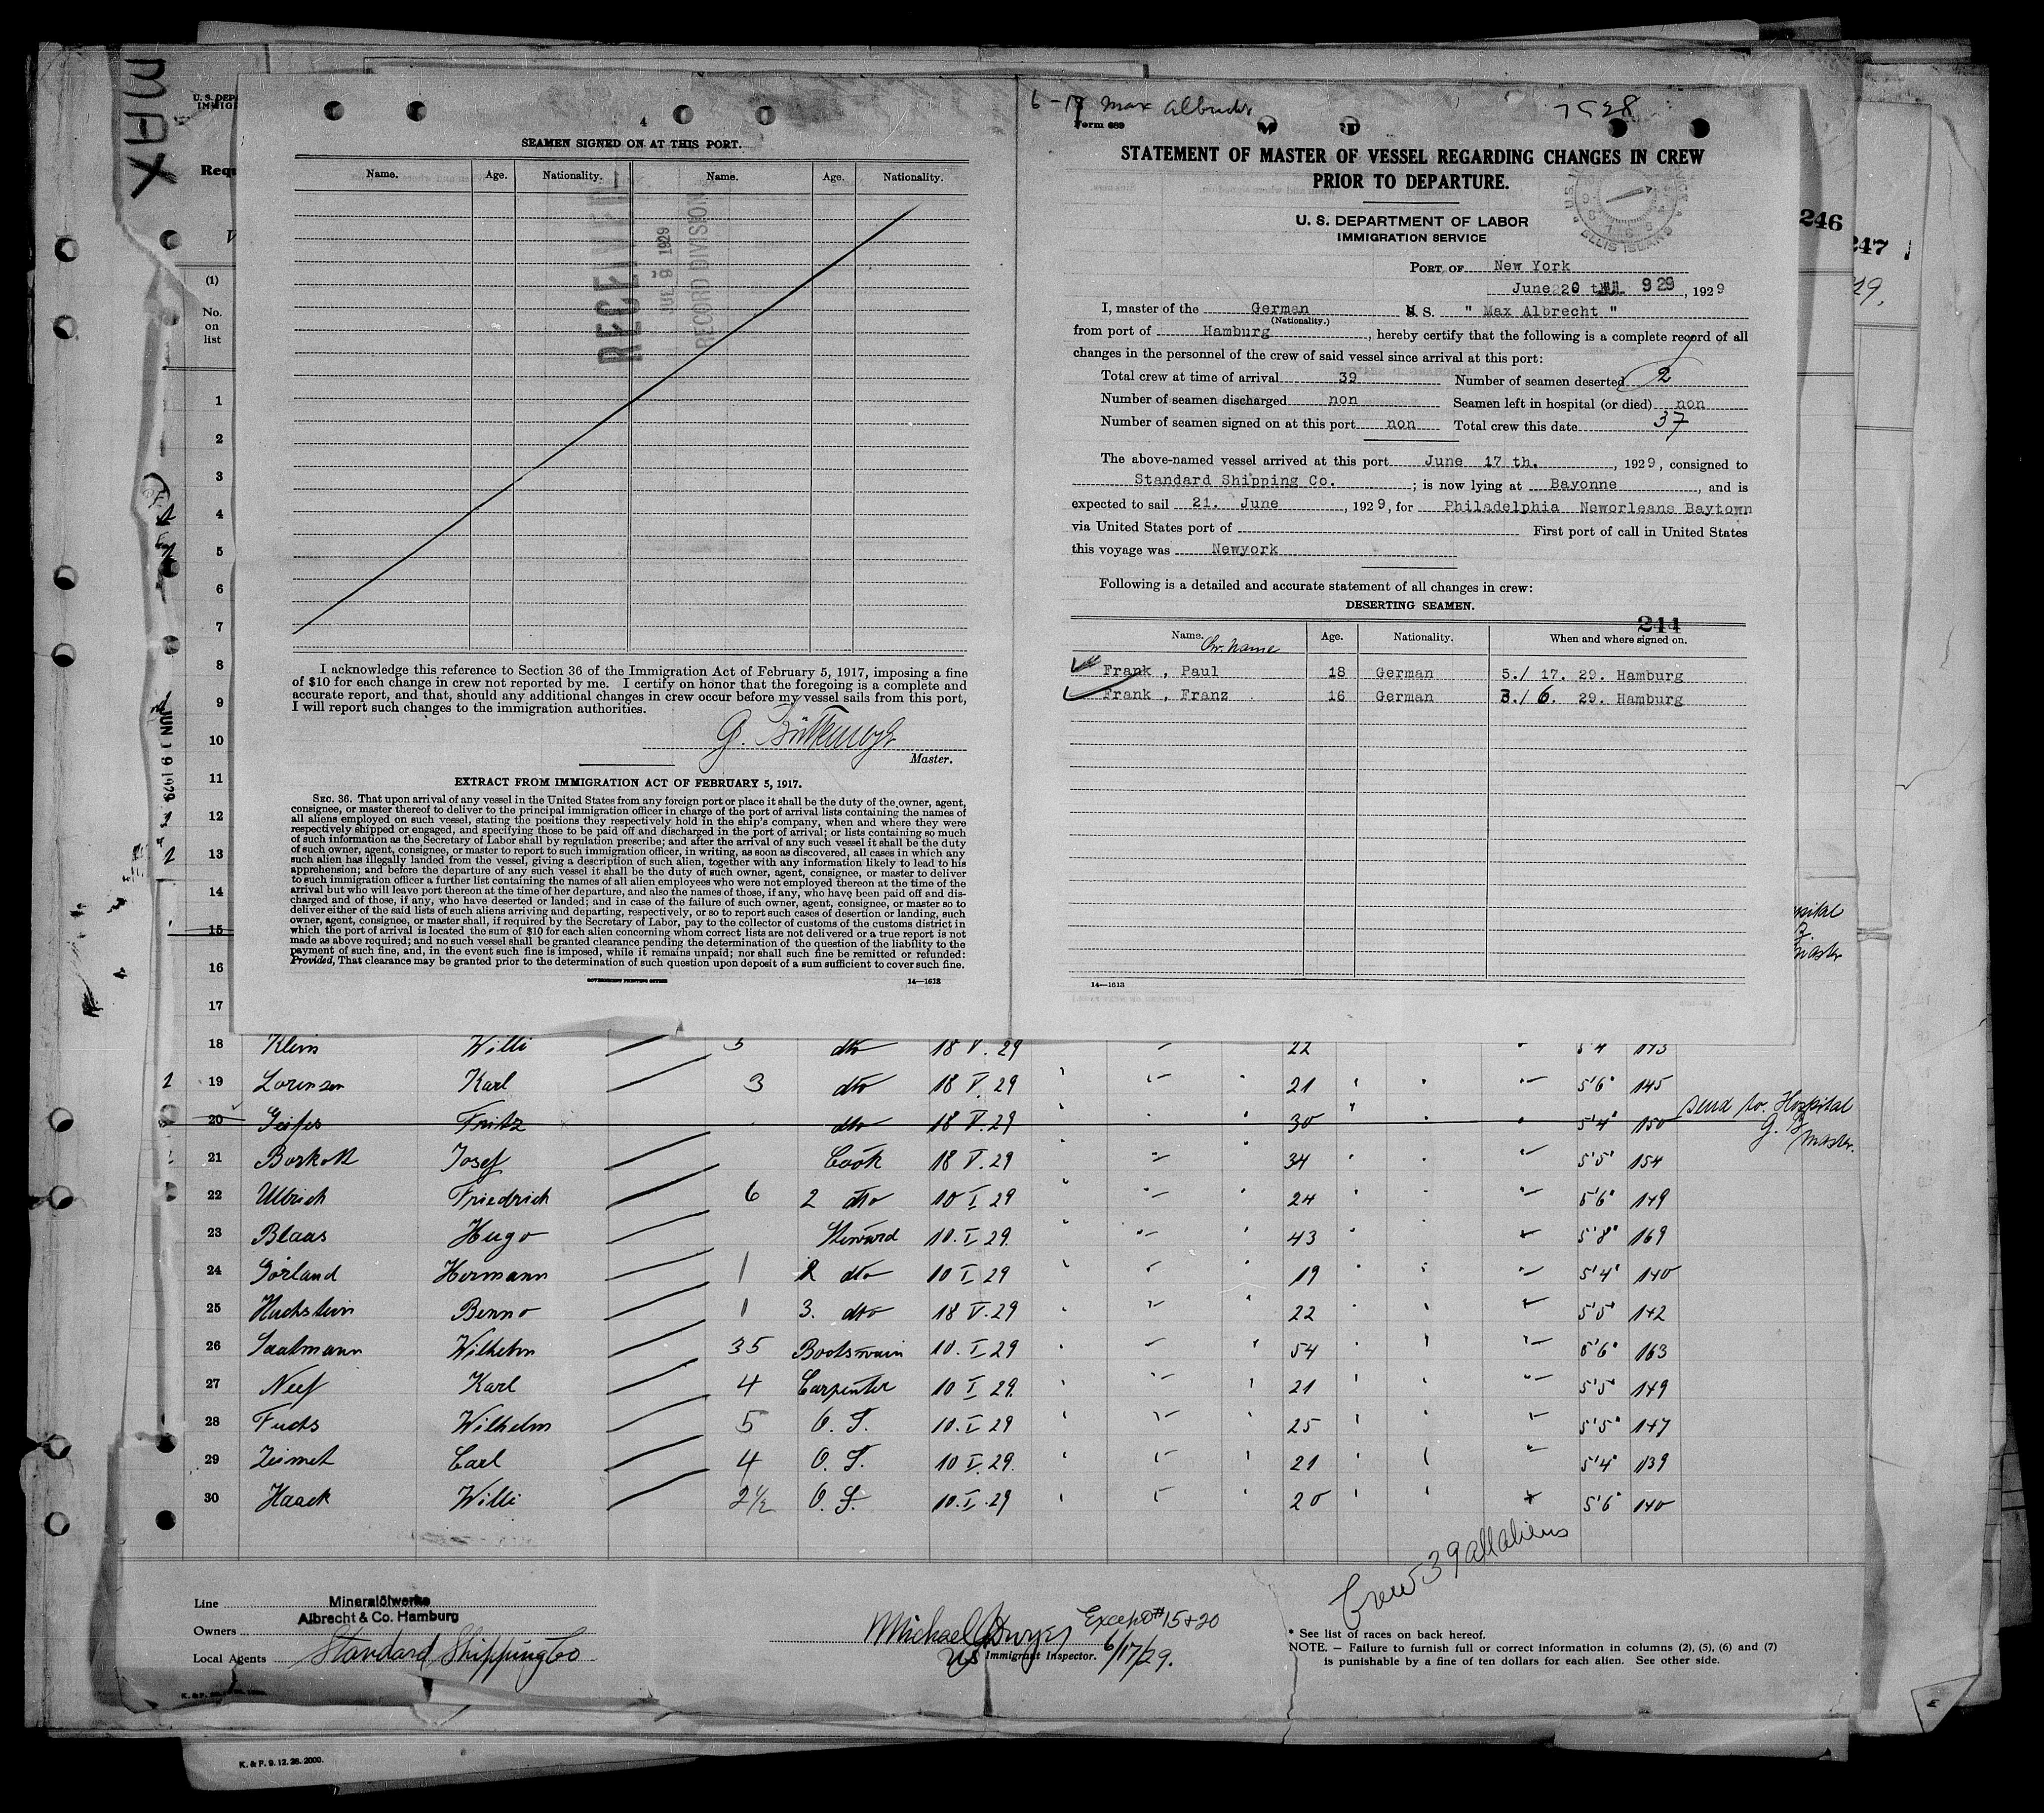 MAX
U. S. DEP
IMMIG
Requ
(1)
No.
on
list
1
2
3
4
5
6
7
8
9
10
11
12
13
14
15
16
17
246
247
29,
4
SEAMEN SIGNED ON AT THIS PORT.
Name. Age. Nationality. Name. Age. Nationality.
RECEIVED
1929
RECORD DIVISION
I acknowledge this reference to Section 36 of the Immigration Act of February 5, 1917, imposing a fine
of $10 for each change in crew not reported by me. I certify on honor that the foregoing is a complete and
accurate report, and that, should any additional changes in crew occur before my vessel sails from this port,
I will report such changes to the immigration authorities.
G.
Master.
EXTRACT FROM IMMIGRATION ACT OF FEBRUARY 5, 1917.
SEC. 36. That upon arrival of any vessel in the United States from any foreign port or place it shall be the duty of the owner, agent,
consignee, or master thereof to deliver to the principal immigration officer in charge of the port of arrival lists containing the names of
all aliens employed on such vessel, stating the positions they respectively hold in the ship's company, when and where they were
respectively shipped or engaged, and specifying those to be paid off and discharged in the port of arrival; or lists containing so much
of such information as the Secretary of Labor shall by regulation prescribe; and after the arrival of any such vessel it shall be the duty
of such owner, agent, consignee, or master to report to such immigration officer, in writing, as soon as discovered, all cases in which any
such alien has illegally landed from the vessel, giving a description of such alien, together with any information likely to lead to his
apprehension; and before the departure of any such vessel it shall be the duty of such owner, agent, consignee, or master to deliver
to such immigration officer a further list containing the names of all alien employees who were not employed thereon at the time of the
arrival but who will leave port thereon at the time of her departure, and also the names of those, if any, who have been paid off and dis-
charged and of those, if any, who have deserted or landed; and in case of the failure of such owner, agent, consignee, or master so to
deliver either of the said lists of such aliens arriving and departing, respectively, or so to report such cases of desertion or landing, such
owner, agent, consignee, or master shall, if required by the Secretary of Labor, pay to the collector of customs of the customs district in
which the port of arrival is located the sum of $10 for each alien concerning whom correct lists are not delivered or a true report is not
made as above required; and no such vessel shall be granted clearance pending the determination of the question of the liability to the
payment of such fine, and, in the event such fine is imposed, while it remains unpaid; nor shall such fine be remitted or refunded:
Provided, That clearance may be granted prior to the determination of such question upon deposit of a sum sufficient to cover such fine.
GOVERNMENT PRINTING OFFICE 14—1613
6-17 Max Albrecht
Form 689
STATEMENT OF MASTER OF VESSEL REGARDING CHANGES IN CREW
PRIOR TO DEPARTURE.
U. S. DEPARTMENT OF LABOR
IMMIGRATION SERVICE
ELLIS ISLAND
PORT OF New York
June 20 th 929, 1929
I, master of the German S. " Max Albrecht "
(Nationality.)
from port of Hamburg, hereby certify that the following is a complete record of all
changes in the personnel of the crew of said vessel since arrival at this port:
Total crew at time of arrival 39 Number of seamen deserted 2
Number of seamen discharged non Seamen left in hospital (or died) non
Number of seamen signed on at this port non Total crew this date 37
The above-named vessel arrived at this port June 17 th., 1929, consigned to
Standard Shipping Co.; is now lying at Bayonne, and is
expected to sail 21. June, 1929, for Philadelphia Neworleans Baytown
via United States port of First port of call in United States
this voyage was Newyork
Following is a detailed and accurate statement of all changes in crew:
DESERTING SEAMEN.
244
Name. Chr. name Age. Nationality. When and where signed on.
Frank, Paul 18 German 5./ 17. 29. Hamburg
Frank, Franz 16 German 3./ 6. 29. Hamburg
14—1613
18 Klein Willi 5 dto 18 V. 29 22 5'4 143
19 Lorenzen Karl 3 dto 18 V. 29 21 5'6" 145
20 Fritz dto 18 V. 29 30 5'4" 150 send to Hospital
G. B.
Master.
21 Josef Cook 18 V. 29 34 5'5" 154
22 Ullrich Friedrich 6 2 dto 10 I 29 24 5'6" 149
23 Blaas Hugo Steward 10. I 29. 43 5'8" 169
24 Görland Hermann 1 2 dto 10 I 29 19 5'4" 140
25 Benno 1 3. dto 18 V. 29 22 5'5" 142
26 Saalmann Wilhelm 35 Bootswain 10. I 29 54 5'6" 163
27 Neef Karl 4 Carpenter 10 I 29. 21 5'5" 149
28 Fuchs Wilhelm 5 O. S. 10. I 29 25 5'5" 147
29 Carl 4 O. S. 10 I. 29. 21 5'4" 139
30 Haack Willi 2½ O. S. 10. I. 29 20 5'6" 140
Crew 39 all aliens
Line Mineralölwerke
Albrecht & Co. Hamburg
Owners
Local Agents Standard Shipping Co
Michael Dwyer Except #15+20
US Immigrant Inspector. 6/17/29.
* See list of races on back hereof.
NOTE. — Failure to furnish full or correct information in columns (2), (5), (6) and (7)
is punishable by a fine of ten dollars for each alien. See other side.
K. & F. 9. 12. 28. 2000.